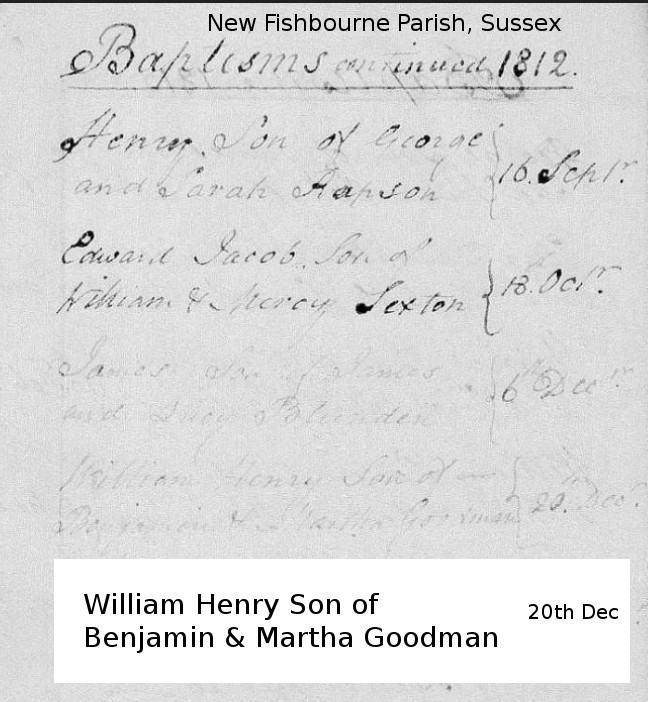 New Fishbourne Parish, Sussex
Baptisms continued 1812.
Henry, Son of George
and Sarah Hapson
16. Septr.
Edward Jacob, Son of
William & Mercy Sexton
18. Octr.
James Son of James
and Lucy Blunden
6th Decr
William Henry Son of
Benjamin & Martha Goodman
20. Decr.
William Henry Son of
Benjamin & Martha Goodman
20th Dec